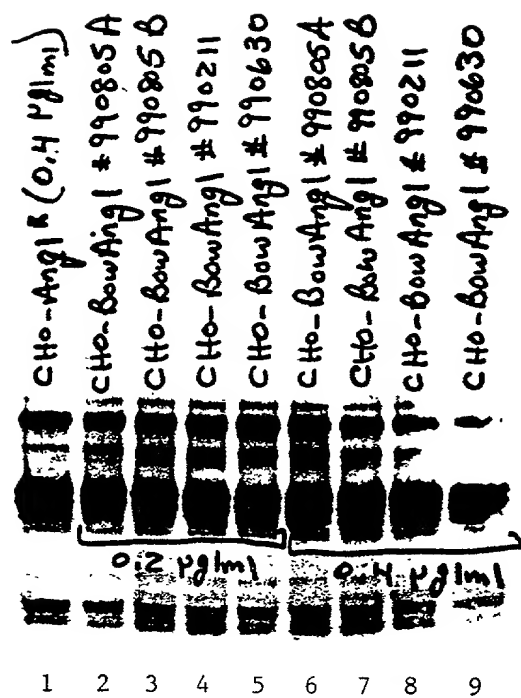 CHO-Ang1ᴿ (0.4 µg/ml)
CHO-BowAng1 #990805A
CHO-BowAng1 #990805B
CHO-BowAng1 #990211
CHO-BowAng1 #990630
CHO-BowAng1 #990805A
CHO-BowAng1 #990805B
CHO-BowAng1 #990211
CHO-BowAng1 #990630
0.2 µg/ml
0.4 µg/ml
1 2 3 4 5 6 7 8 9